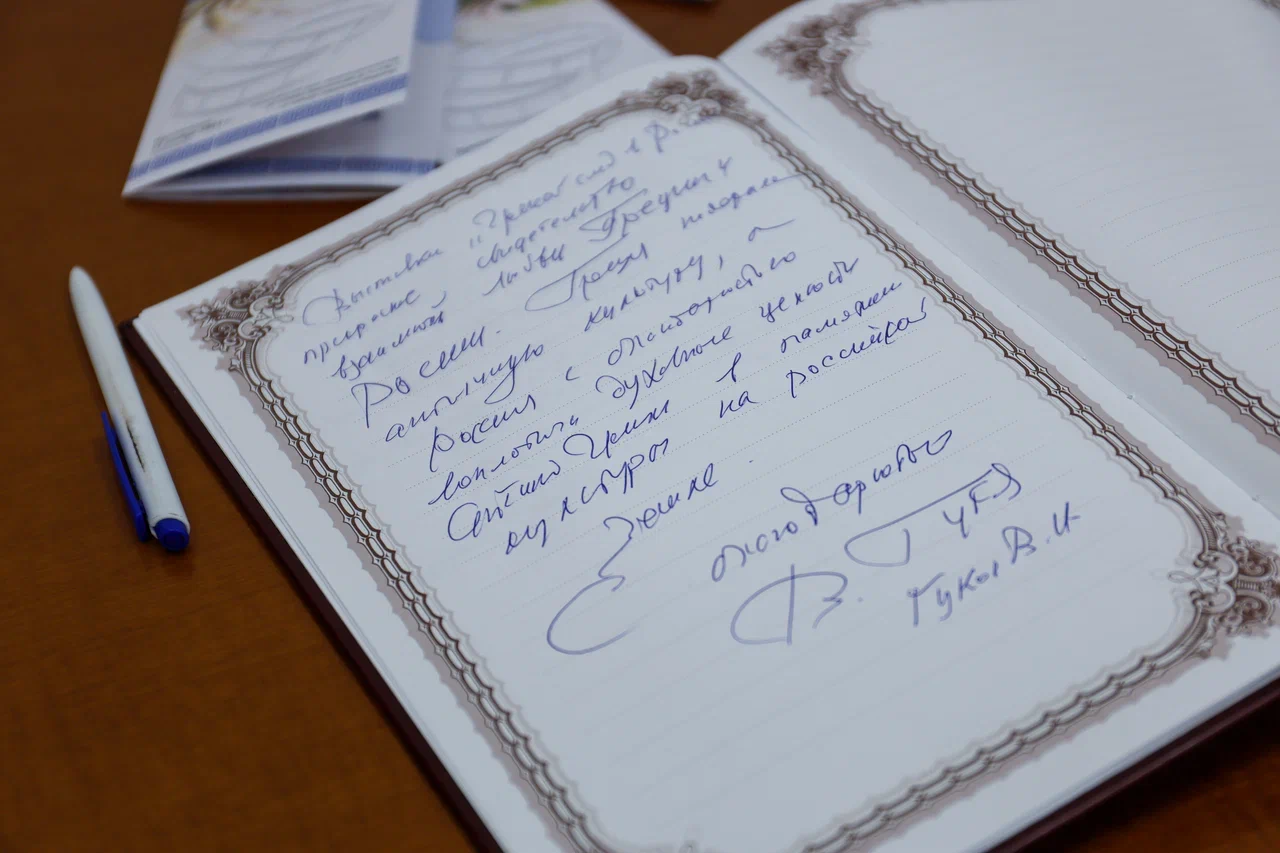 Выставка "Греческий след в Р
прекрасное свидетельство
взаимной любви Греции и
России. Греция подарила
античную культуру, а
Россия с благодарностью
воплотила духовные ценности
Античной Греции в памятники
культуры на российской
Земле.
С благодарностью
В. Гук